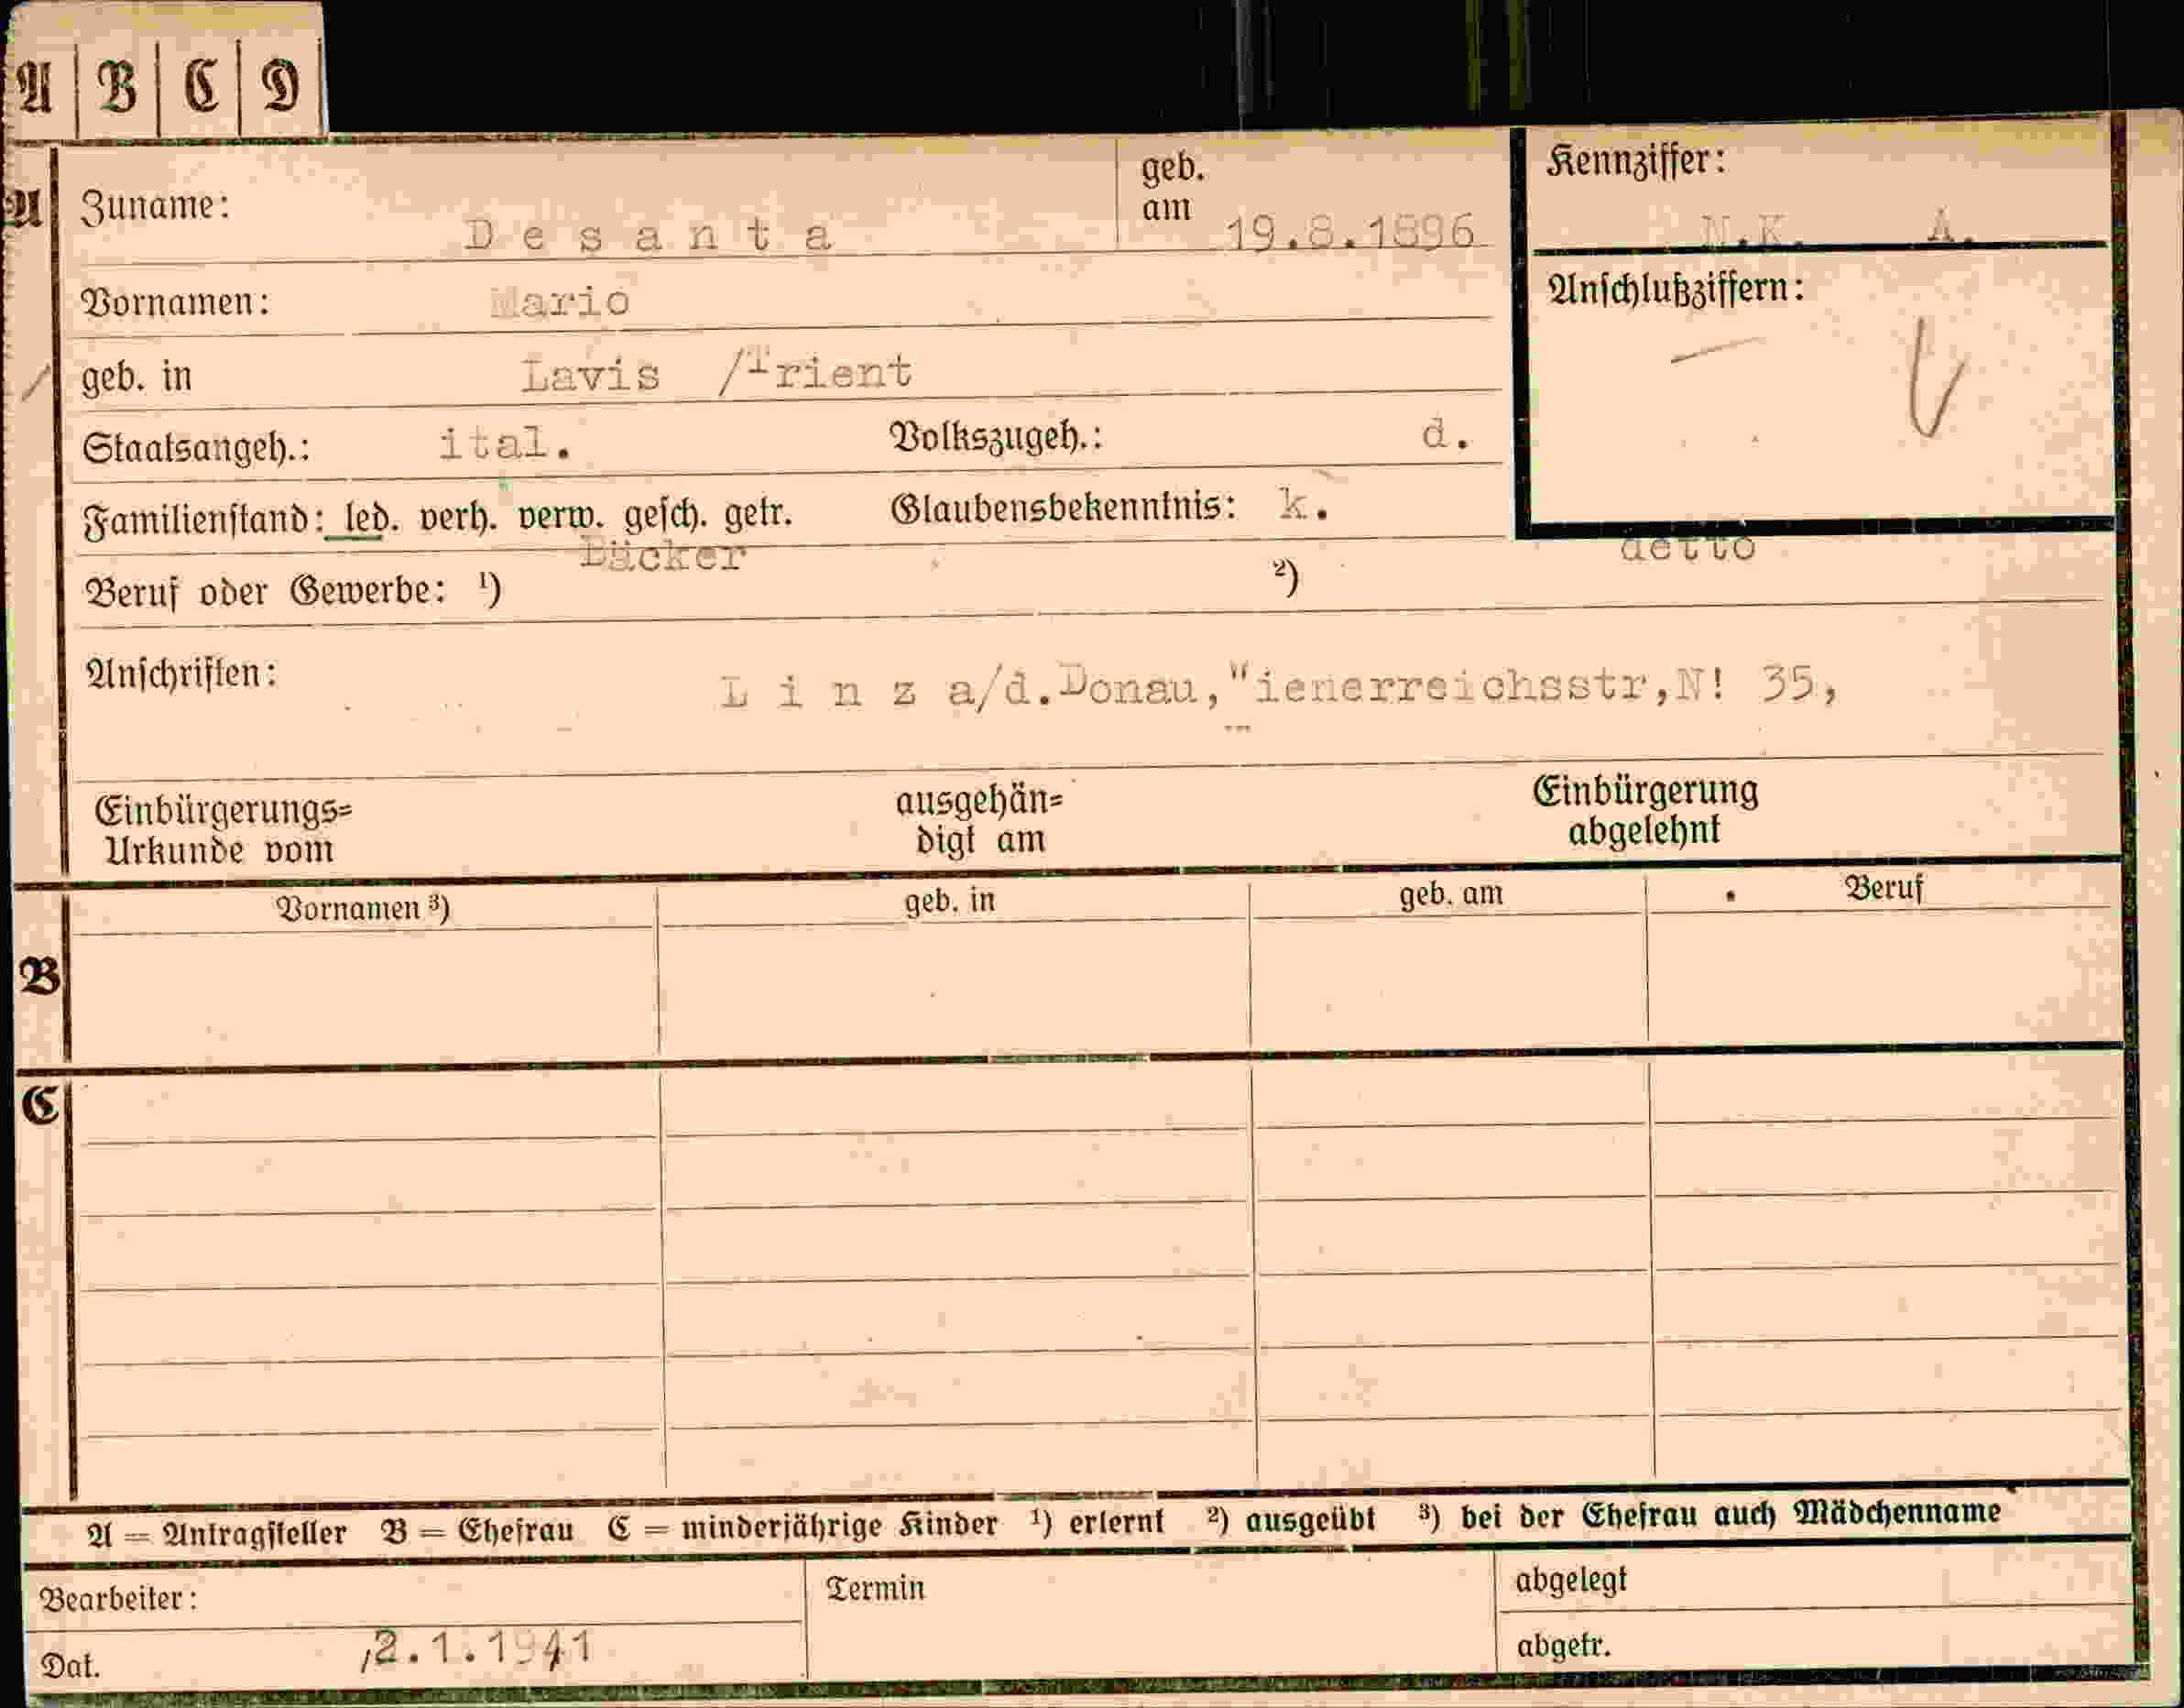 A B C D
A
Zuname: Desanta
geb. am 19.8.1896
Kennziffer: N.K. A.
Vornamen: Mario
Anschlußziffern:
geb. in Lavis /Trient
Staatsangeh.: ital. Volkszugeh.: d.
Familienstand: led. verh. verw. gesch. getr. Glaubensbekenntnis: k.
Beruf oder Gewerbe: ¹) Bäcker ²) detto
Anschriften: Linz a/d.Donau,Wienerreichsstr,N! 35,
Einbürgerungs=
Urkunde vom
ausgehän=
digt am
Einbürgerung
abgelehnt
Vornamen ³) geb. in geb. am Beruf
B
C
A = Antragsteller B = Ehefrau C = minderjährige Kinder ¹) erlernt ²) ausgeübt ³) bei der Ehefrau auch Mädchenname
Bearbeiter:
Termin
abgelegt
Dat. 2.1.1941
abgetr.